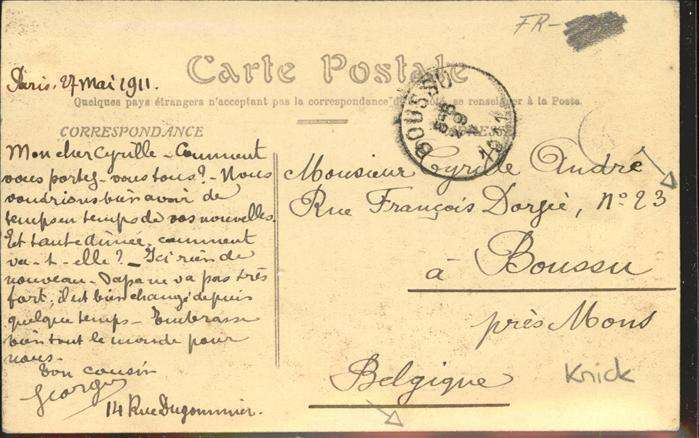 FR-
Carte Postale
Paris, 27 Mai 1911.
Quelques pays étrangers n'acceptent pas la correspondance se renseigner à la Poste
CORRESPONDANCE
BOUSSU
1911
Mon cher Cyrille - Comment
vous portez-vous tous? - Nous
voudrions bien avoir de
temps en temps de vos nouvelles.
Et tante comment
va-t-elle? - Ici rien de
nouveau - Papa ne va pas très
fort, il est bien changé depuis
quelque temps - Embrasse
bien tout le monde pour
nous.
Ton cousin
Georges
14 Rue Dugommier.
Monsieur Cyrille André
Rue François Dorzée, N° 23
à Boussu
près Mons
Belgique
Knick